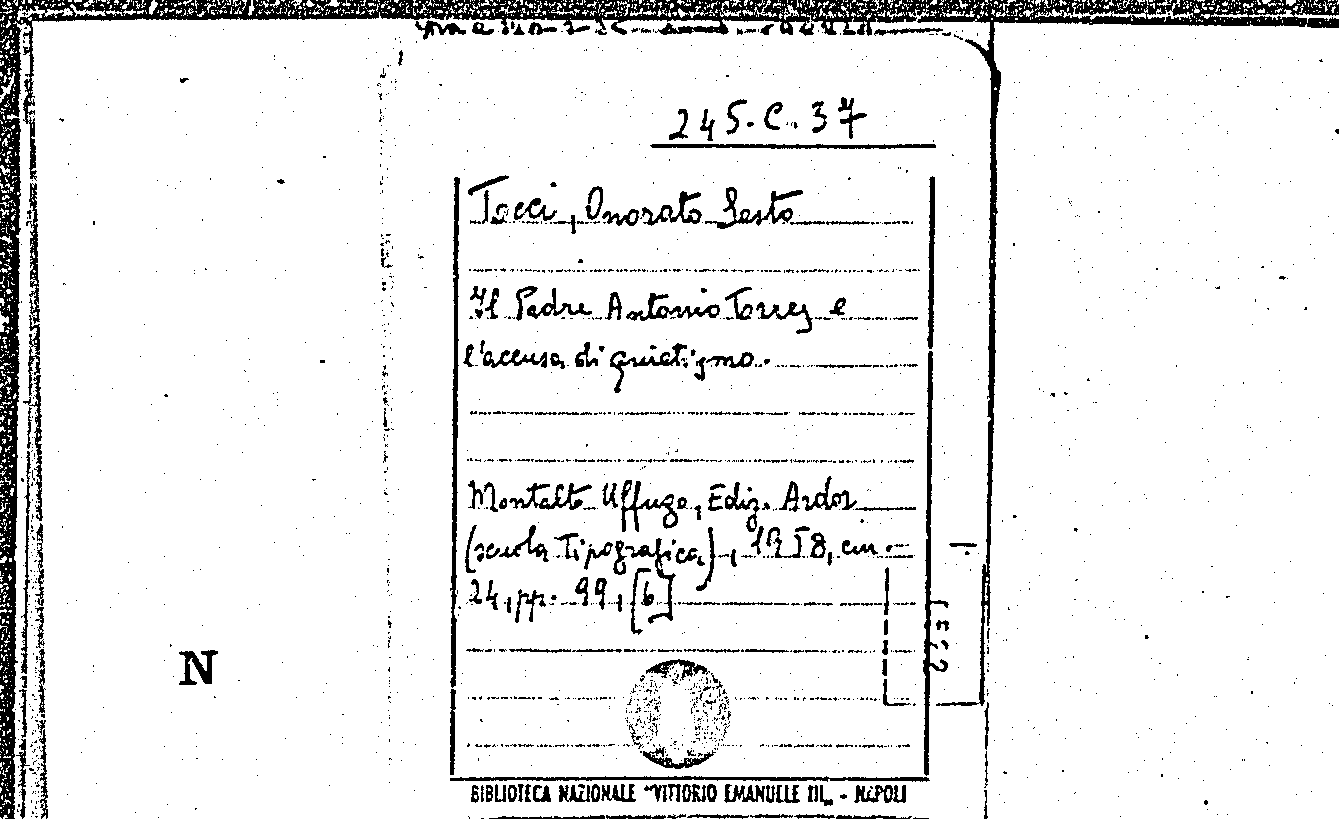 245.C.37
Tocci, Onorato Sesto
Il Padre Antonio Torres e
l'accusa di quietismo.
Montalto Uffugo, Ediz. Ardor
(scuola Tipografica), 1958, cm.
24, pp. 99, [6]
N
BIBLIOTECA NAZIONALE "VITTORIO EMANUELE III„ - NAPOLI